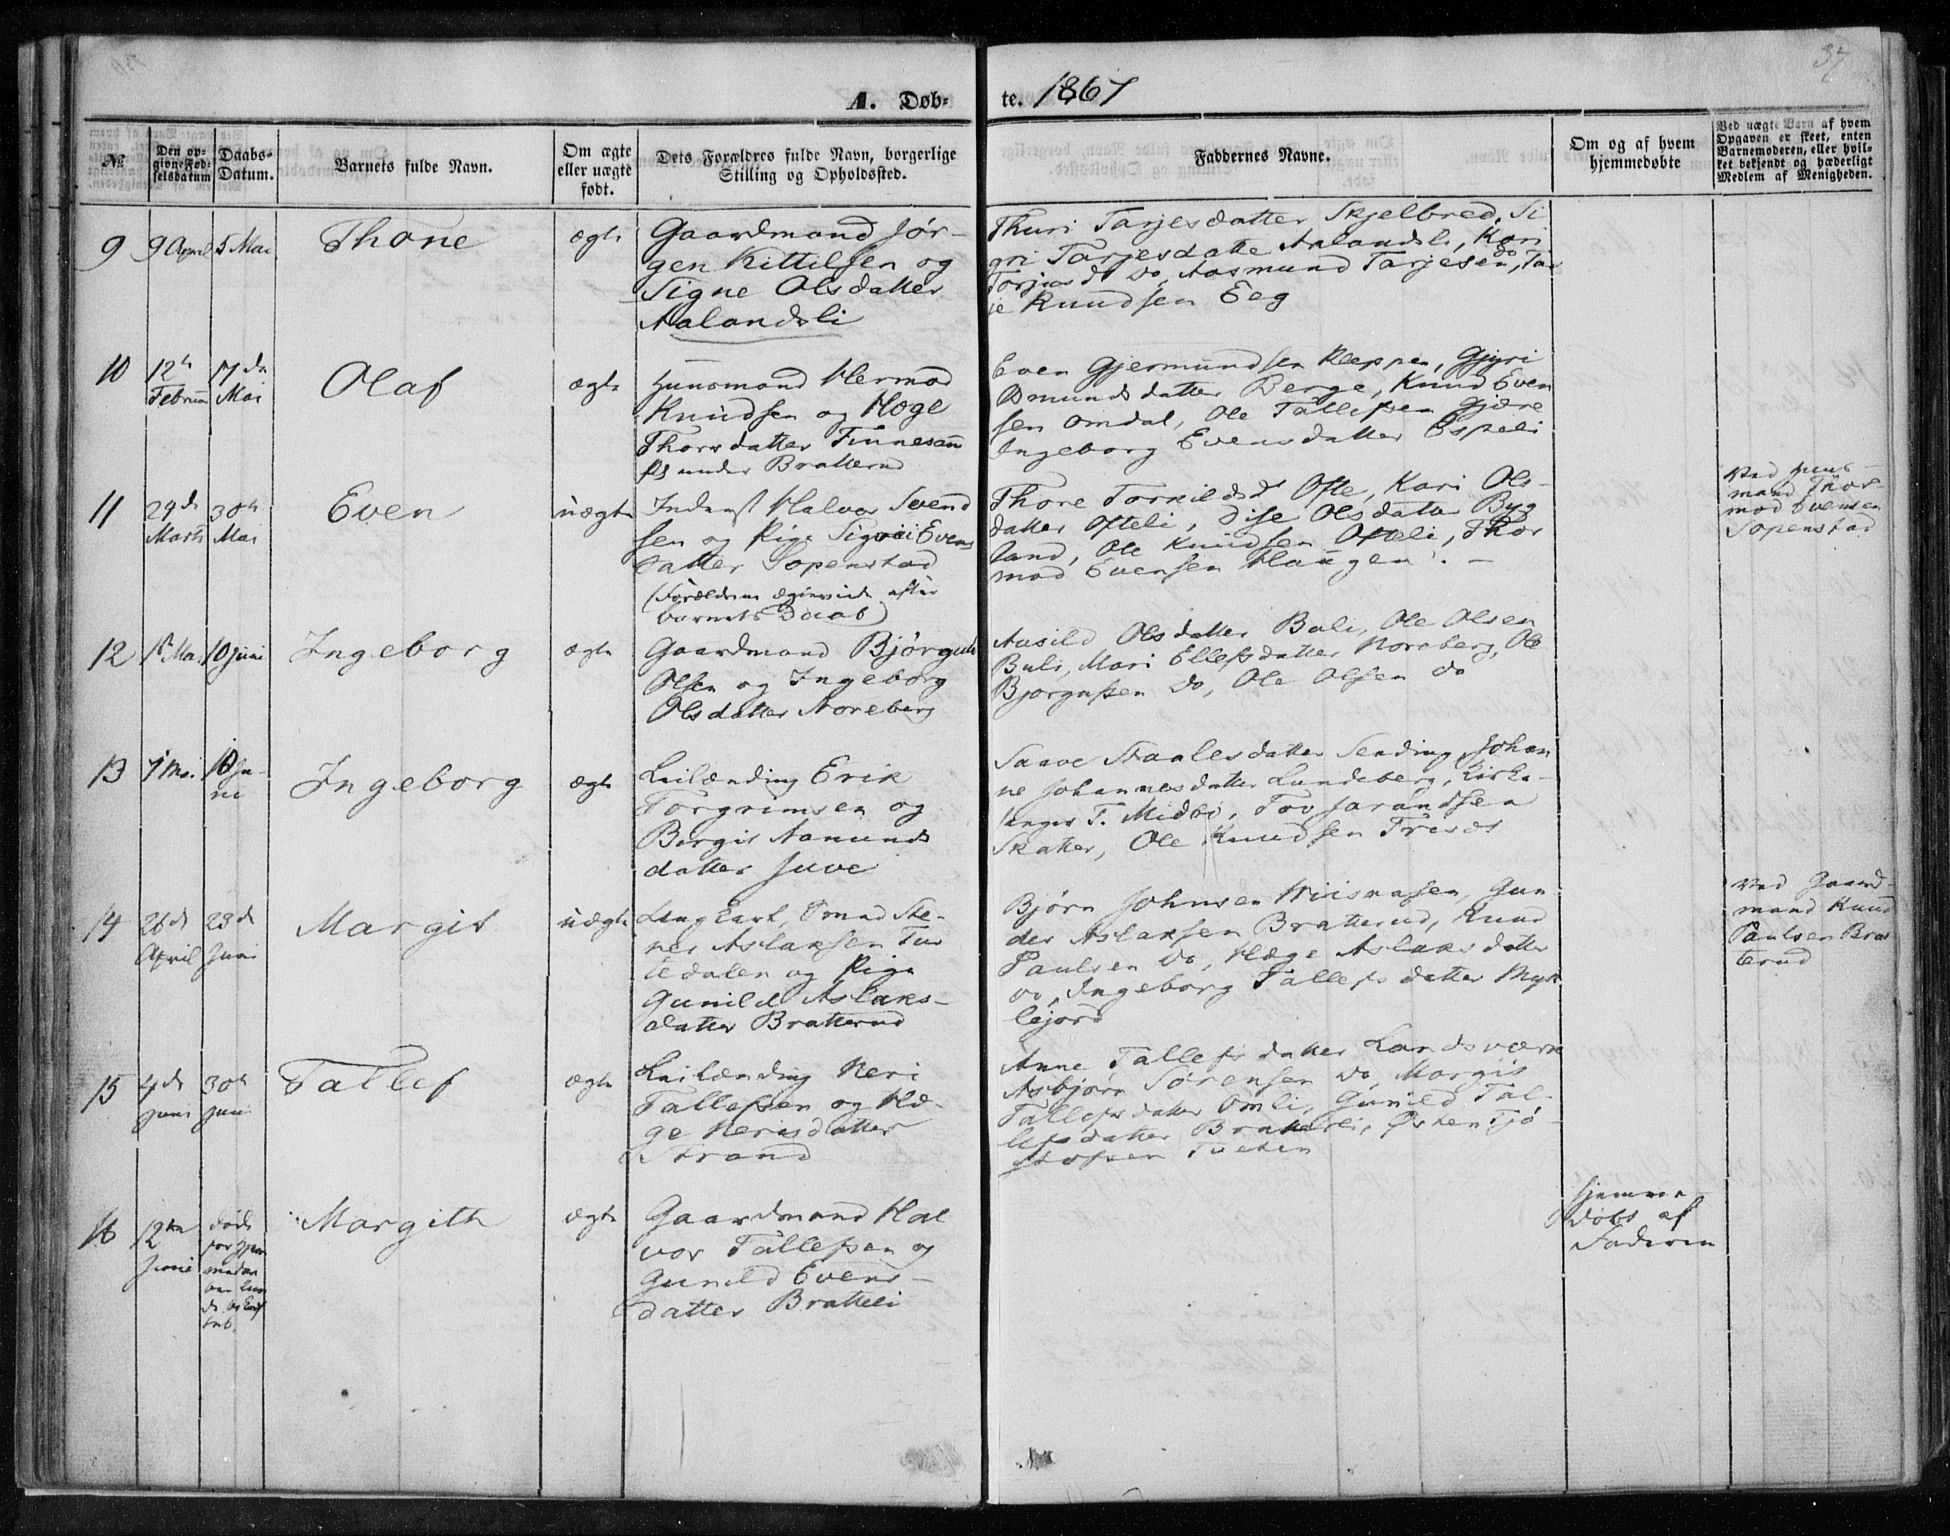 37
A. Døb-
te. 1867
№
Den op-
givne Fød-
selsdatum
Daabs-
Datum.
Barnets fulde Navn.
Om ægte
eller uægte
født.
Dets Forældres fulde Navn, borgerlige
Stilling og Opholdssted.
Faddernes Navne.
Om og af hvem
hjemmedøbte
Ved uægte Barn af hvem
Opgaven er skeet, enten
Barnemoderen, eller hvil-
ket bekjendt og hæderligt
Medlem af Menigheden.
9
9 April
5 Mai
Thone
ægte
Gaardmand Jør-
gen Kittilsen og
Signe Olsdatter
Aalandsli
Thuri Tarjesdatter Skjelbred, Si
gri Tarjesdatte Aalandsli, Kari
do, Aasmund Tarjesen, Tar
je Knudsen Eeg
10
12te
Februar
17de
Mai
Olaf
ægte
Huusmand Hermod
Knudsen og Hæge
Thorsdatter Finnesan
pl. under Bratterud
Even Gjermundsen Kleppen, Gjyri
Omundsdatter Berge, Knud Even
sen Omdal, Ole Tallefsen Gjære
Ingeborg Evensdatter Espeli
11
29de
Marts
30te
Mai
Even
uægte
Inderst Halvor Svend
sen og Pige Sigrii Evens
datter Sopenstad
(Forældrene ægteviede efter
barnets Daab)
Thore Torkildsd. Ofte, Kari Ols-
datter Ofteli, Dise Olsdatter Byg
land, Ole Knudsen Ofteli, Thor
mod Evensen Haugen. -
Ved Huus-
mand Thor-
mod Evensen
Sopenstad
12
1ste Mai
10 Juni
Ingeborg
ægte
Gaardmand Bjørgulv
Olsen og Ingeborg
Olsdatter Noreberg
Aasild Olsdatter Buli, Ole Olsen
Buli, Mari Ellefsdatter Noreberg, Ole
Bjorgufsen do, Ole Olsen do
13
7 Mai
10 Ju-
ni
Ingeborg
ægte
Leilænding Erik
Torgrimsen og
Borgir Aamunds
datter Juve
Saave Staalesdatter Sending, Johan
ne Johannesdatter Lundeberg, Kirke-
sanger T. Midbø, Tov Jarandsen
Skatter, Ole Knudsen
14
26de
April
23de
Juni
Margit
uægte
Ungkarl, Smed Ste-
ner Aslaksen Tve
tedalen og Pige
Gunild Aslaks-
datter Bratterud
Bjørn Johnsen Gun
der Aslaksen Bratterud, Knud
Paulsen do, Hæge Aslaksdatter
do, Ingeborg Tallefsdatter Myk
lejord
Ved Gaard-
mand Knud
Paulsen Brat
terud
15
4de
Juni
30te
Juni
Tallef
ægte
Leilænding Neri
Tallefsen og Hæ-
ge Nerisdatter
Strand
Anne Tallefsdatter Landsværk
Asbjørn Sørensen do, Margit
Tallefsdatter Omli, Gunild Tal-
lefsdatter Bratteli, Østen Tjø-
stofsen Tveten
16
12te
Junii
døde
for
Margith
ægte
Gaardmand Hal
vor Tallefsen og
Gunild Evens-
datter Bratteli
hjemme
døbt af
Faderen